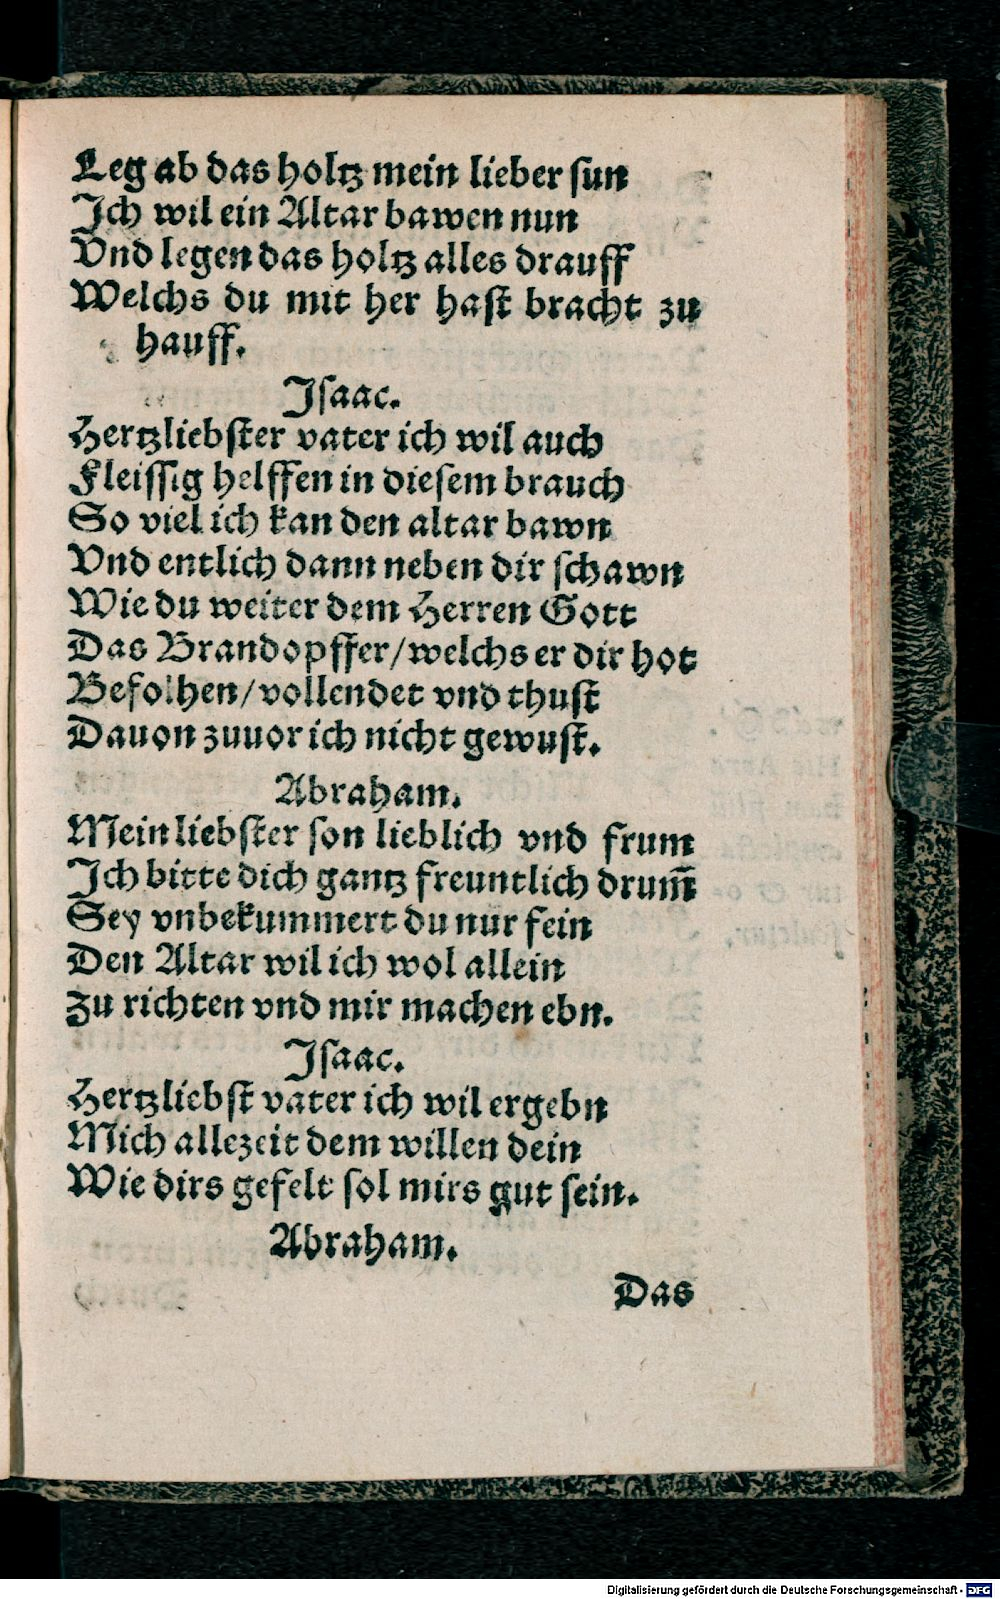 Leg ab das holtz mein lieber sun
Ich wil ein Altar bawen nun
Vnd legen das holtz alles drauff
Welchs du mit her hast bracht zu
hauff.
Isaac.
Hertzliebster vater ich wil auch
Fleissig helffen in diesem brauch
So viel ich kan den altar bawn
Vnd entlich dann neben dir schawn
Wie du weiter dem Herren Gott
Das Brandopffer/welchs er dir hot
Befolhen/vollendet vnd thust
Dauon zuuor ich nicht gewust.
Abraham.
Mein liebster son lieblich vnd frum
Ich bitte dich gantz freuntlich drum̃
Sey vnbekummert du nur fein
Den Altar wil ich wol allein
Zu richten vnd mir machen ebn.
Isaac.
Hertzliebst vater ich wil ergebn
Mich allezeit dem willen dein
Wie dirs gefelt sol mirs gut sein.
Abraham.
Das
Digitalisierung gefördert durch die Deutsche Forschungsgemeinschaft - DFG